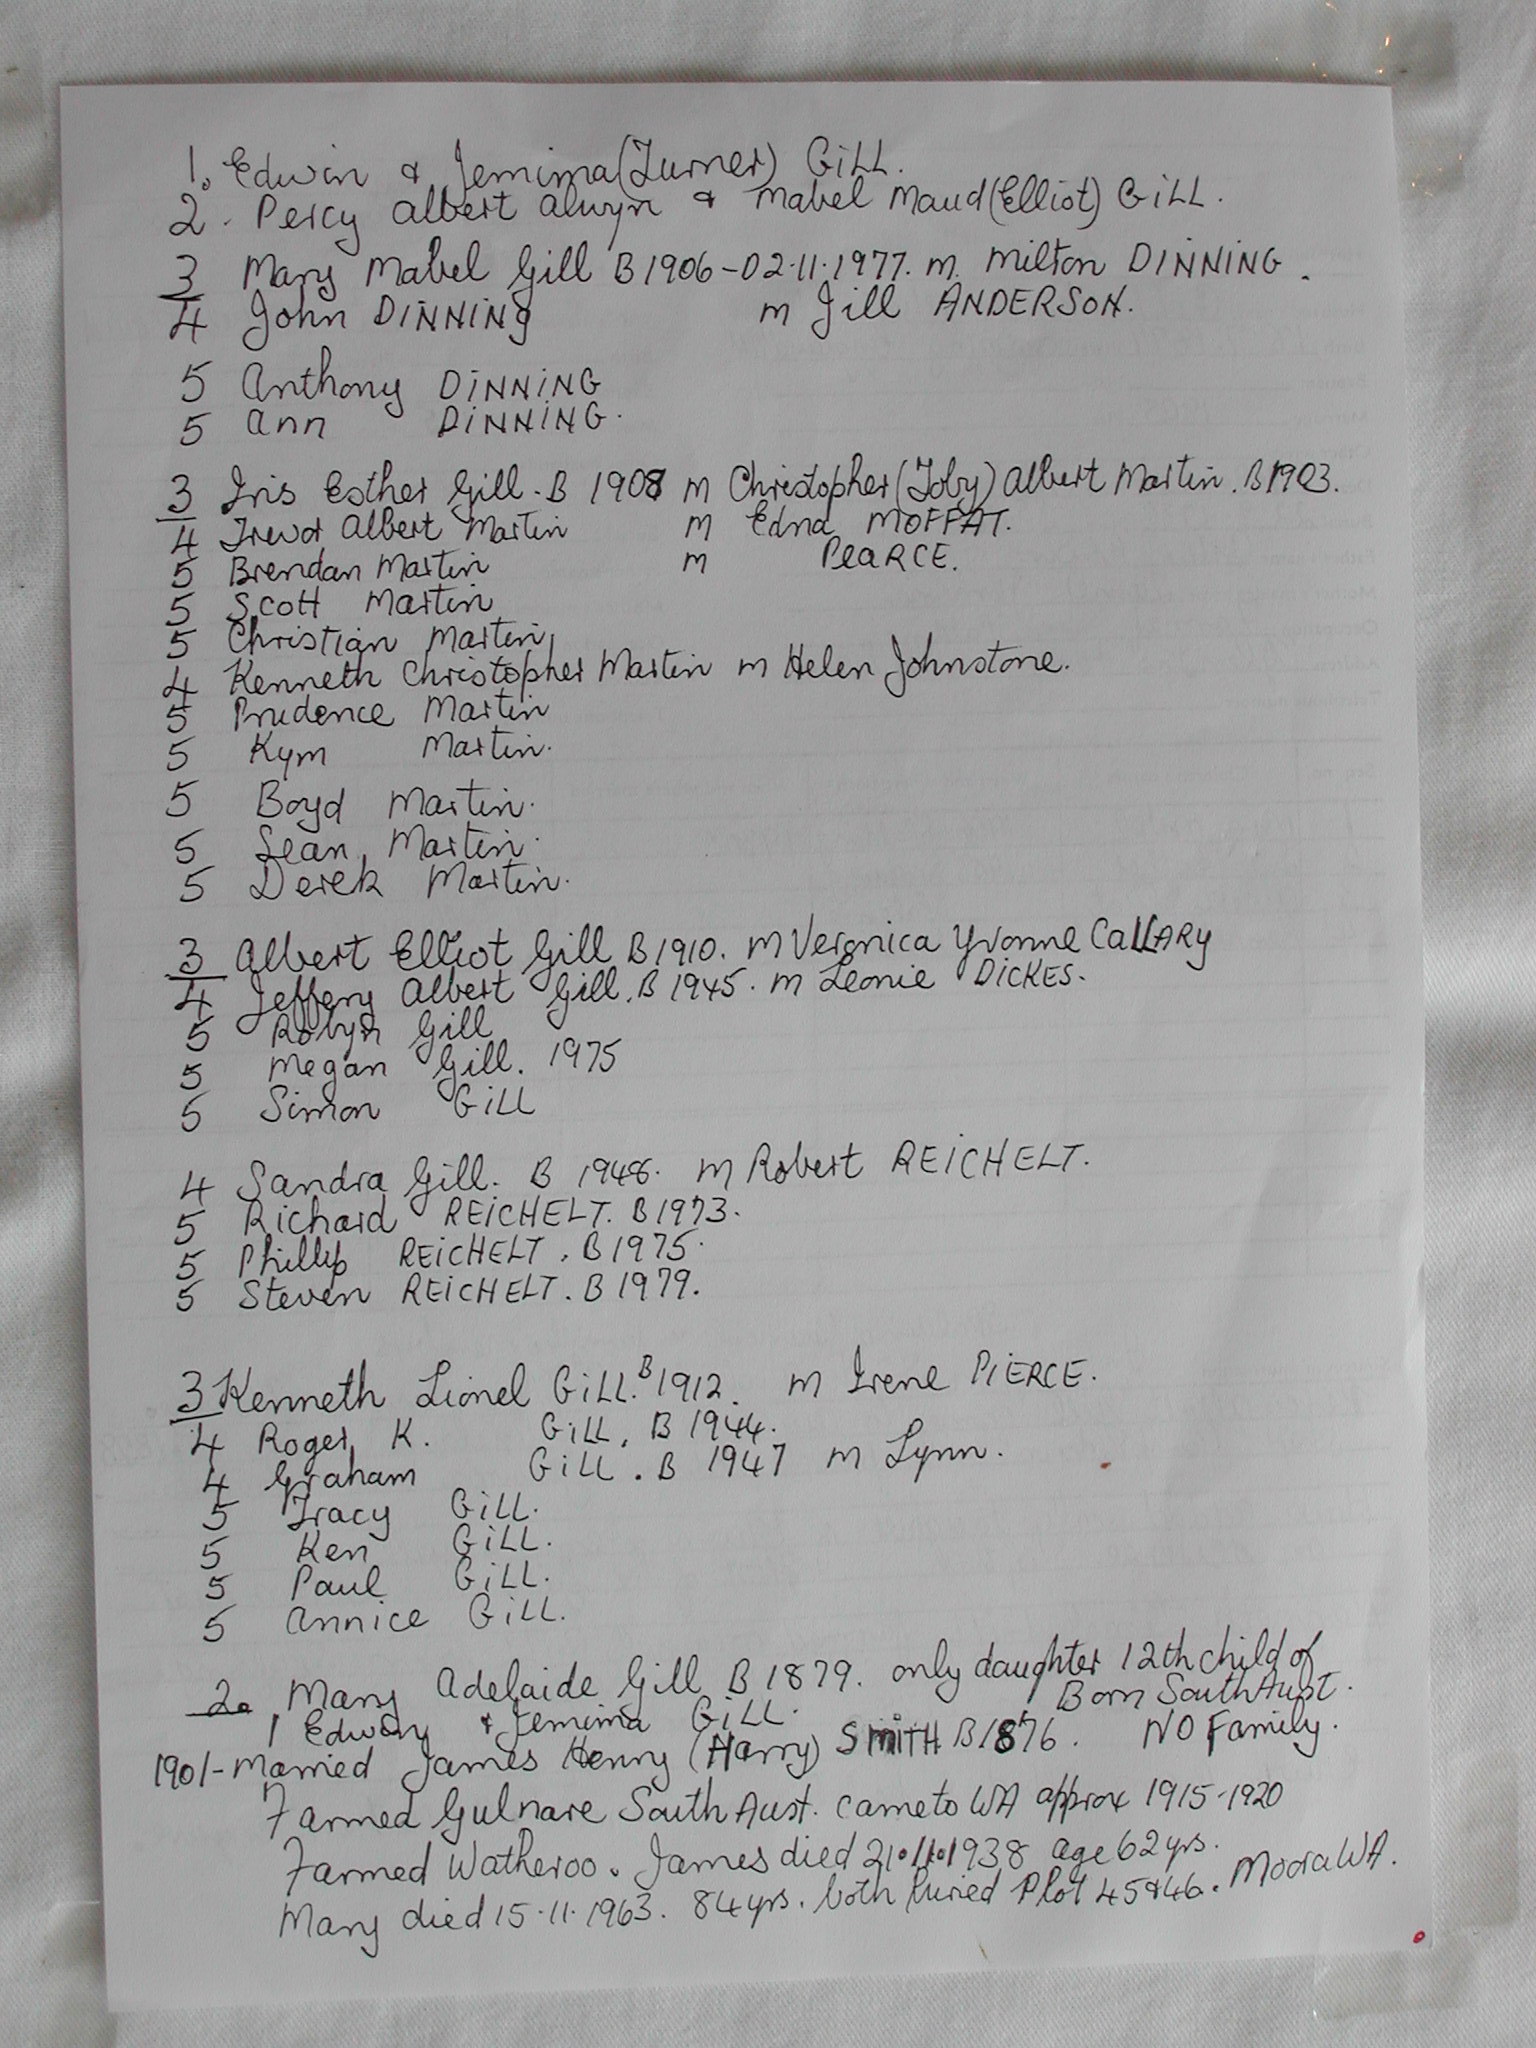 1. Edwin & Jemima (Turner) GiLL.
2. Percy Albert Alwyn & Mabel Maud (Elliot) GiLL.
3 Mary Mabel Gill B 1906-02.11.1977. m. Milton DINNING.
4 John DINNINg m Jill ANDERSON.
5 Anthony DiNNiNG
5 Ann DiNNiNG.
3 Iris Esther Gill. B 1908 m Christopher (Toby) Albert Martin. B1903.
4 Trevor Albert Martin m Edna MOFFAT.
5 Brendan Martin m PeARCE.
5 Scott Martin
5 Christian Martin
4 Kenneth Christopher Martin m Helen Johnstone.
5 Prudence Martin
5 Kym Martin.
5 Boyd Martin.
5 Sean Martin.
5 Derek Martin.
3 Albert Elliot Gill B 1910. m Veronica Yvonne CaLLARy
4 Jeffery Albert Gill. B 1945. m Leonie DiCKES.
5 Robyn Gill
5 Megan Gill. 1975
5 Simon GiLL
4 Sandra Gill. B 1948. m Robert REiCHELT.
5 Richard REiCHELT. B 1973.
5 Phillip REiCHELT. B 1975.
5 Steven REiCHELT. B 1979.
3 Kenneth Lionel GiLL. B 1912. m Irene PiERCE.
4 Roger K. GiLL. B 1944.
4 Graham GiLL. B 1947 m Lynn.
5 Tracy GiLL.
5 Ken GiLL.
5 Paul GiLL.
5 Annice GiLL.
2. Mary Adelaide Gill B 1879. only daughter 12th child of
1 Edwin & Jemima GiLL. Born South Aust.
1901-Married James Henry (Harry) SmiTH B 1876. NO Family.
Farmed Gulnare South Aust. came to WA approx 1915-1920
Farmed Watheroo. James died 21.11.1938 age 62yrs.
Mary died 15.11.1963. 84yrs. both buried Plot 45&46. Moora WA.